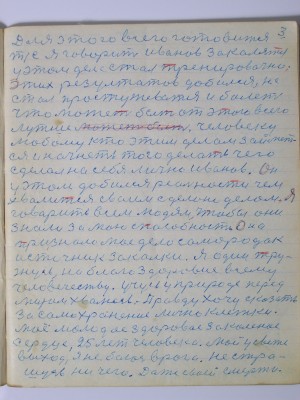 3
Для этого всего готовится
т/е я говорит Иванов Закалять
у этом деле стал тренировочно,
этих результатов добился, не
стал простуживатся и болеть
что может быть от этого всего
лучшее может быть, человеку
любому кто этим делом займет-
ся и начнет того делать чего
сделал на себя лично Иванов. Он
у этом добился рактости чем
хвалится своим сделано делом. Я
говорить всем людям, чтобы они
знали за мои способности. Она
признано мое дело самородок
источник закалки. Я один тру-
жусь, на благо здоровие всему
человечеству. учусь у природе перед
миром хвалюсь. Правду хочу сказать
За самохранение лично клетки.
Мое молодое здоровое закаленое
сердце, 25 лет человека. Мой у свете
выход, я не боюсь врага. Не стра-
шусь ни чего. Даже своей смерти.